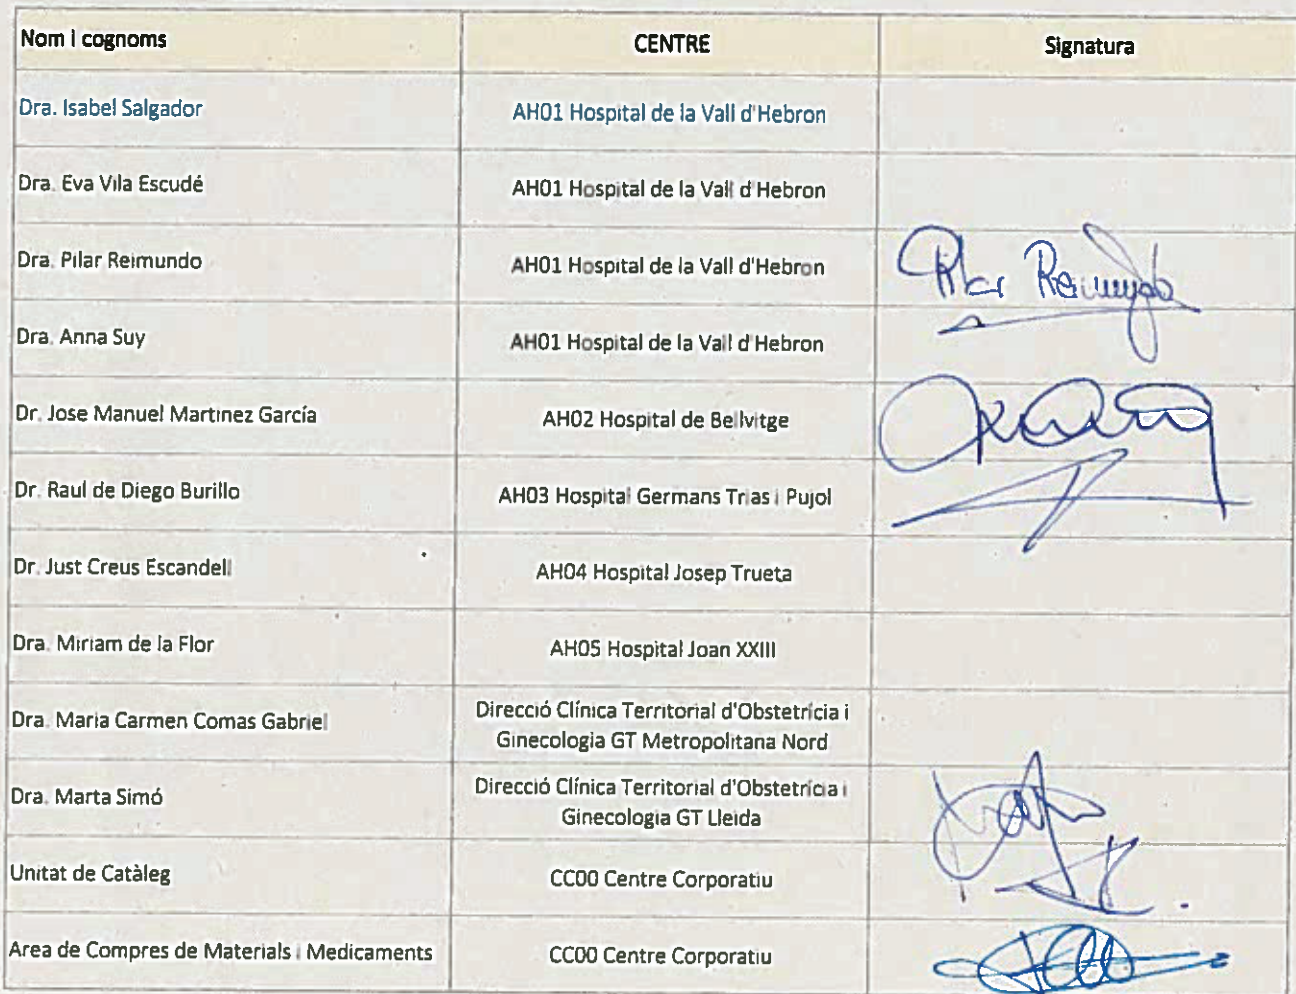 Nom i cognoms CENTRE Signatura
Dra. Isabel Salgador AH01 Hospital de la Vall d'Hebron
Dra. Eva Vila Escudé AH01 Hospital de la Vall d'Hebron
Dra. Pilar Reimundo AH01 Hospital de la Vall d'Hebron Pilar Reimundo
Dra. Anna Suy AH01 Hospital de la Vall d'Hebron
Dr. Jose Manuel Martinez García AH02 Hospital de Bellvitge
Dr. Raul de Diego Burillo AH03 Hospital Germans Trias i Pujol
Dr. Just Creus Escandell AH04 Hospital Josep Trueta
Dra. Miriam de la Flor AH05 Hospital Joan XXIII
Dra. Maria Carmen Comas Gabriel Direcció Clínica Territorial d'Obstetrícia i
Ginecologia GT Metropolitana Nord
Dra. Marta Simó Direcció Clínica Territorial d'Obstetrícia i
Ginecologia GT Lleida
Unitat de Catàleg CC00 Centre Corporatiu
Area de Compres de Materials i Medicaments CC00 Centre Corporatiu